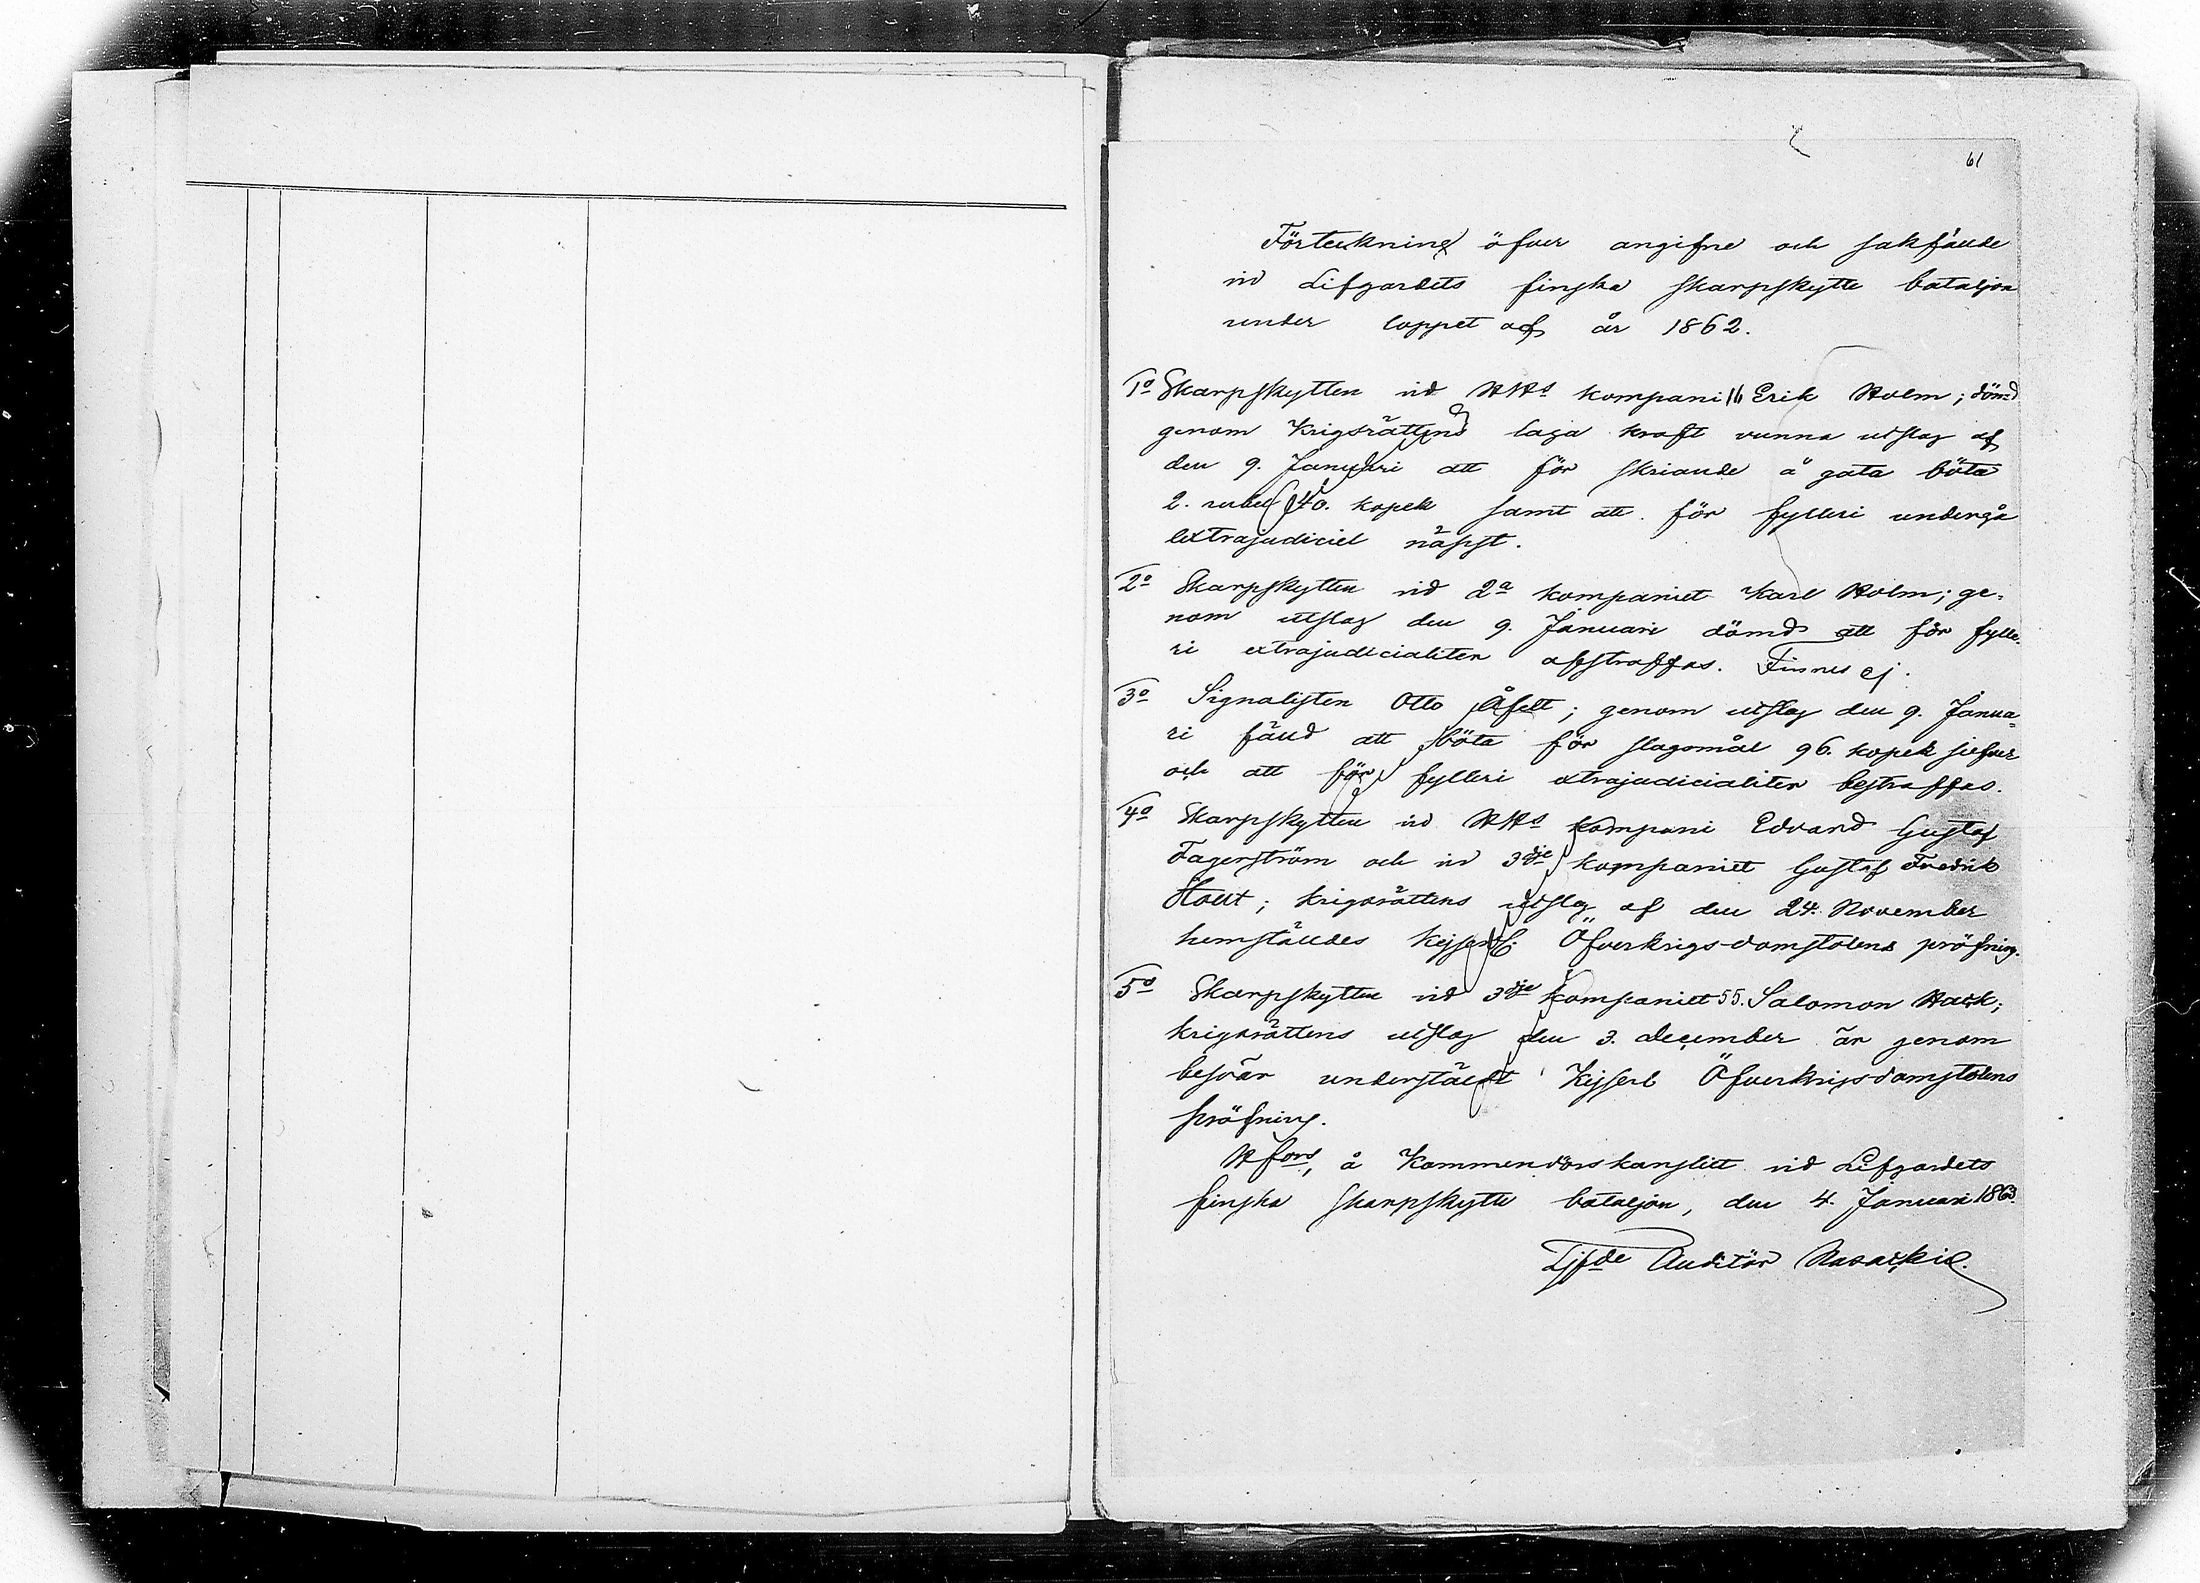 61
Förteckning öfver angifne och sakfälde
vid Lifgardets finska skarpskytte bataljon
under loppet af år 1862.
1o Skarpskytten vid HHs kompani 16 Erik Holm; dömd
genom Krigsrättens laga kraft vunna utslag af
den 9. Januari att för skriande å gata böta
2. rubel 40. kopek samt att för fylleri undergå
extrajudiciel näpst.
2o Skarpskytten vid 2a kompaniet Karl Holm; ge-
nom utslag den 9. Januari dömd att för fylle-
ri extrajudicialiter afstraffas. Finnes ej.
3o Signalisten Otto Åfelt; genom utslag den 9. Janua-
ri fäld att böta för slagsmål 96. kopek silfver
och att för fylleri extrajudicialiter bestraffas.
4o Skarpskytten vid HHs kompani Edvard Gustaf
Fagerström och vid 3dje kompaniet Gustaf Fredrik
Hollt; krigsrättens utslag af den 24. November
hemställdes Kejserl. Öfverkrigs-domstolens pröfning.
5o Skarpskytten vid 3dje kompaniet 55. Salomon Hack;
krigsrättens utslag den 3. december är genom
besvär understäldt Kejserl Öfverkrigsdomstolens
pröfning.
Hfors, å Kommendörskanslitt vid Lifgardets
finska skarpskytte bataljon, den 4. Januari 1863.
Tjfde Auditör